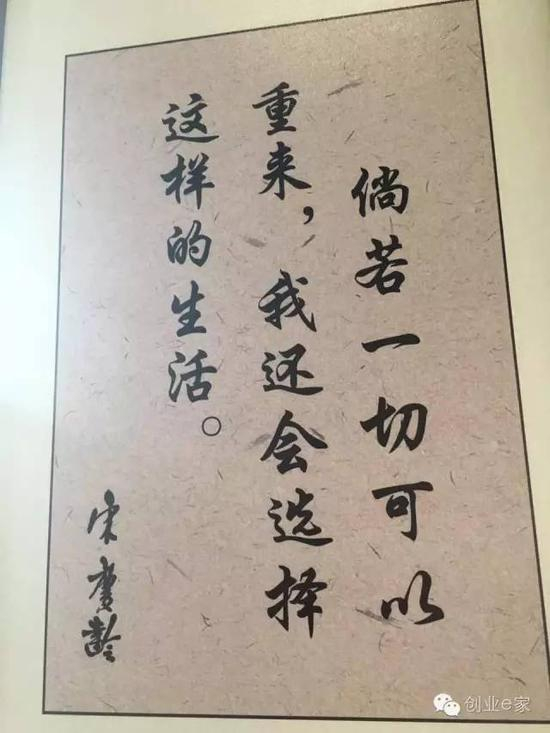 倘若一切可以
重来，我还会选择
这样的生活。
宋庆龄
创业e家